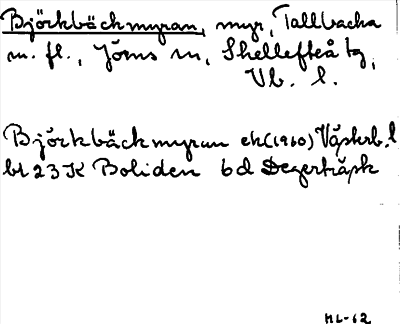 Björkbäckmyran, myr, Tallbacka
m. fl., Jörns sn, Skellefteå tg,
Vb. l.
Björkbäckmyran ek (1960) Västerb. l
bl 23 K Boliden 6d Degerträsk
ML-62